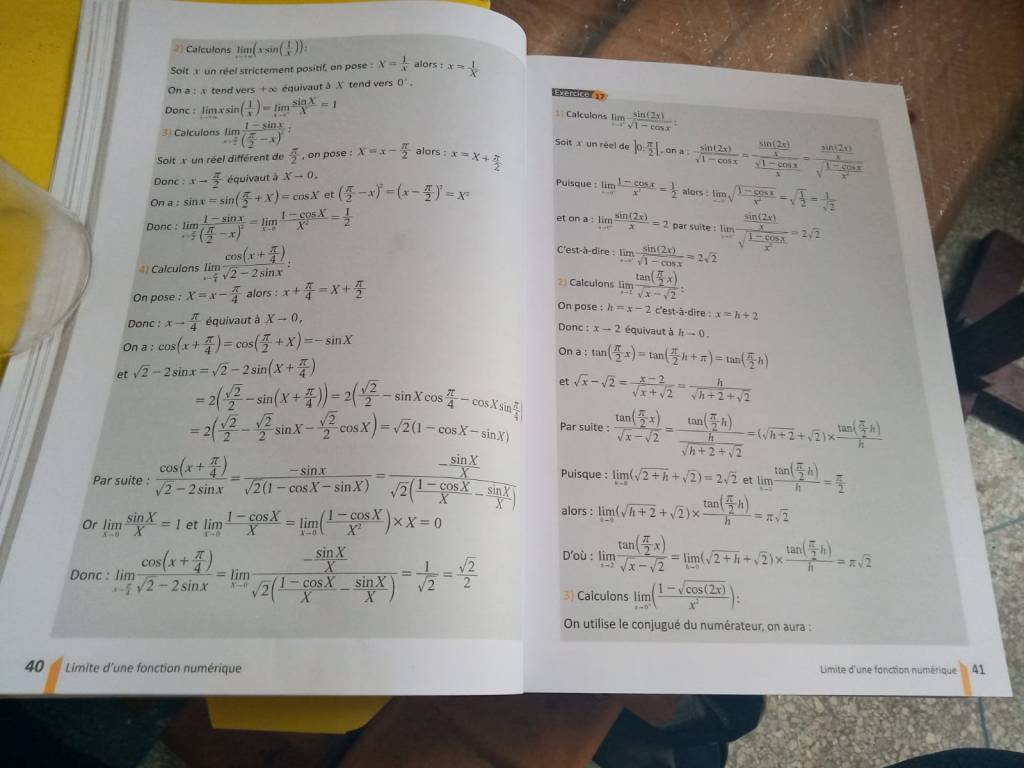 2) Calculons lim x→+∞ (x sin(1/x)) :
Soit x un réel strictement positif, on pose : X = 1/x alors : x = 1/X
On a : x tend vers +∞ équivaut à X tend vers 0⁺.
Donc : lim x→+∞ x sin(1/x) = lim X→0⁺ sinX/X = 1
3) Calculons lim x→π/2 (1 − sinx)/(π/2 − x)² :
Soit x un réel différent de π/2, on pose : X = x − π/2 alors : x = X + π/2
Donc : x → π/2 équivaut à X → 0,
On a : sinx = sin(π/2 + X) = cosX et (π/2 − x)² = (x − π/2)² = X²
Donc : lim x→π/2 (1 − sinx)/(π/2 − x)² = lim X→0 (1 − cosX)/X² = 1/2
4) Calculons lim x→π/4 cos(x + π/4)/(√2 − 2sinx) :
On pose : X = x − π/4 alors : x + π/4 = X + π/2
Donc : x → π/4 équivaut à X → 0,
On a : cos(x + π/4) = cos(π/2 + X) = −sinX
et √2 − 2sinx = √2 − 2sin(X + π/4)
= 2(√2/2 − sin(X + π/4)) = 2(√2/2 − sinX cos π/4 − cosX sin π/4)
= 2(√2/2 − √2/2 sinX − √2/2 cosX) = √2(1 − cosX − sinX)
Par suite : cos(x + π/4)/(√2 − 2sinx) = −sinx/(√2(1 − cosX − sinX)) = (−sinX/X)/(√2((1 − cosX)/X − sinX/X))
Or lim X→0 sinX/X = 1 et lim X→0 (1 − cosX)/X = lim X→0 ((1 − cosX)/X²) × X = 0
Donc : lim x→π/4 cos(x + π/4)/(√2 − 2sinx) = lim X→0 (−sinX/X)/(√2((1 − cosX)/X − sinX/X)) = 1/√2 = √2/2
40 Limite d'une fonction numérique
Exercice 17
1) Calculons lim x→0⁺ sin(2x)/√(1 − cosx) :
Soit x un réel de ]0; π/2[, on a : sin(2x)/√(1 − cosx) = (sin(2x)/x)/(√(1 − cosx)/x) = (sin(2x)/x)/√((1 − cosx)/x²)
Puisque : lim x→0⁺ (1 − cosx)/x² = 1/2 alors : lim x→0⁺ √((1 − cosx)/x²) = √(1/2) = 1/√2
et on a : lim x→0⁺ sin(2x)/x = 2 par suite : lim x→0⁺ (sin(2x)/x)/√((1 − cosx)/x²) = 2√2
C'est-à-dire : lim x→0⁺ sin(2x)/√(1 − cosx) = 2√2
2) Calculons lim x→2 tan(π/2 x)/(√x − √2) :
On pose : h = x − 2 c'est-à-dire : x = h + 2
Donc : x → 2 équivaut à h → 0.
On a : tan(π/2 x) = tan(π/2 h + π) = tan(π/2 h)
et √x − √2 = (x − 2)/(√x + √2) = h/(√(h + 2) + √2)
Par suite : tan(π/2 x)/(√x − √2) = tan(π/2 h)/(h/(√(h + 2) + √2)) = (√(h + 2) + √2) × tan(π/2 h)/h
Puisque : lim h→0 (√(2 + h) + √2) = 2√2 et lim tan(π/2 h)/h = π/2
alors : lim h→0 (√(h + 2) + √2) × tan(π/2 h)/h = π√2
D'où : lim x→2 tan(π/2 x)/(√x − √2) = lim h→0 (√(2 + h) + √2) × tan(π/2 h)/h = π√2
3) Calculons lim x→0⁺ ((1 − √cos(2x))/x²) :
On utilise le conjugué du numérateur, on aura :
Limite d'une fonction numérique 41